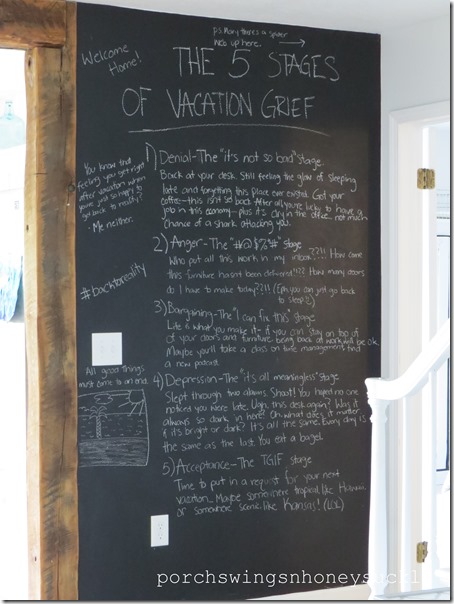 p.s. Mom, there's a spider
web up here.
Welcome
Home!
THE 5 STAGES
OF VACATION GRIEF
You know that
feeling you get right
after vacation when
you're just so happy to
get back to reality?
- Me neither.
#backtoreality
All good things
must come to an end.
1) Denial-The "it's not so bad" stage.
Back at your desk. Still feeling the glow of sleeping
late and forgetting this place ever existed. Got your
coffee-this isn't so bad. After all you're lucky to have a
job in this economy-plus it's dry in the office... not much
chance of a shark attacking you.
2) Anger-The "#@$%#" stage
Who put all this work in my inbox??!! How come
this furniture hasn't been delivered!??? How many doors
do I have to make today??!! (Eph, you can just go back
to sleep)
3) Bargaining-The "I can fix this" stage
Life is what you make it- if you can stay on top of
of your doors and furniture, being back at work will be ok.
Maybe you'll take a class on time management, find
a new podcast.
4) Depression-The "it's all meaningless" stage
Slept through two alarms. Shoot! You hoped no one
noticed you were late. Ugh, this desk again? Why is it
always so dark in here? Oh what does it matter
if it's bright or dark? It's all the same. Every day is
the same as the last. You eat a bagel.
5) Acceptance-The TGIF stage
Time to put in a request for your next
vacation. Maybe somewhere tropical like Hawaii
or somewhere scenic like Kansas! (LOL)
porchswingsnhoneysuckl